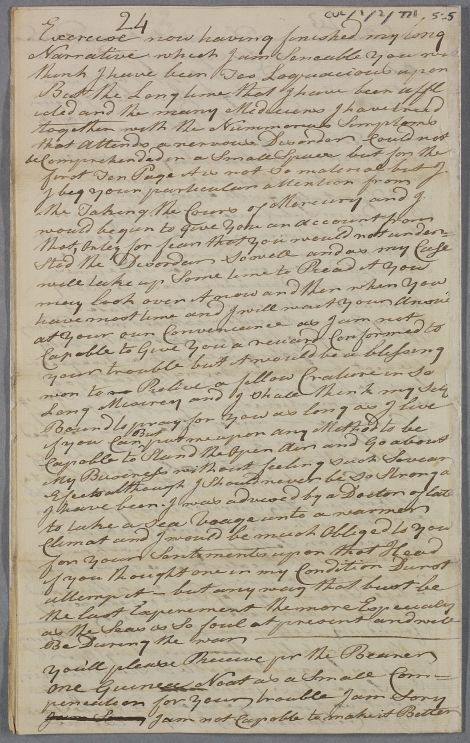 24
CUL/1/2/771 5·5
Exercise now having finished my long
Narrative which I am Senceable you will
think I have been Too Loquacious upon
But the Long time that I have been affl
icted and the many Medicins I have tried
together with the Numorous Symptoms
that Attends a nervous Disorder Could not
be Comprehended in a Small Space but for the
first Ten Page As is not so material but I
I beg your particular attention from
the Taking the Cours of Mercury and I
would begun to Give you an account from
that, only for fear that you would not under-
Stod the Disorder So well and as my Case
will take up Some time to Read it you
may look over it now and then when you
have most time and I will wait your Answr
at your own Convenience as I am not
Capable to Give you a reward Conformed to
your trouble but it would be a blessing
won to Relive a fellow Crature in so
Long Misery and I Shall think my Self
Bound to pray for you as long as I live
if you Can But put me upon any Method to be
Capable to Stand the Open Air and Go about
My Business without feeling such Sevear
Efects although I should never be so Strong a
I have been. I was advised by a Doctor of late
to take a Sea Voage unto a warmer
Climat and I would be much Obliged to you
for your Santements upon that Head
if you thought one in my Condition Durst
attempt it – but any way that must be
the last Experement the more Especially
as the Seas is So foul at present and will
Be During the war
You'll please Receive pr the Bearer
one Guinea Noat as a Small Com-
pensation for your trouble I am Sory
I am not Capable to make it Better